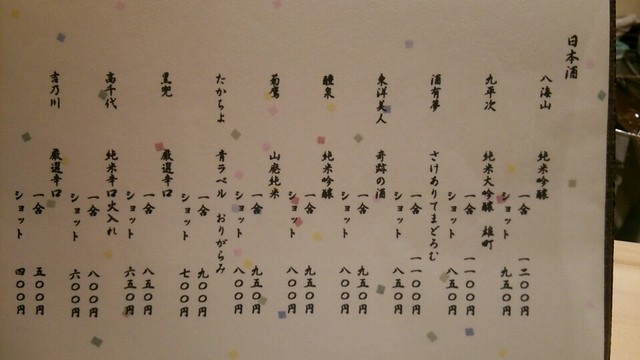 日本酒
八海山 純米吟醸
一合 一二〇〇円
ショット 九五〇円
九平次 純米大吟醸 雄町
一合 一一〇〇円
ショット 八五〇円
酒有夢 さけありてまどろむ
一合 一一〇〇円
ショット 八五〇円
東洋美人 奇跡の酒
一合 九五〇円
ショット 八〇〇円
醴泉 純米吟醸
一合 九五〇円
ショット 八〇〇円
菊鷹 山廃純米
一合 九五〇円
ショット 八〇〇円
たからよ 青ラベル おりがらみ
一合 九〇〇円
ショット 七〇〇円
里兜 厳選辛口
一合 八五〇円
ショット 六五〇円
高千代 純米辛口火入れ
一合 八〇〇円
ショット 六〇〇円
吉乃川 厳選辛口
一合 五〇〇円
ショット 四〇〇円